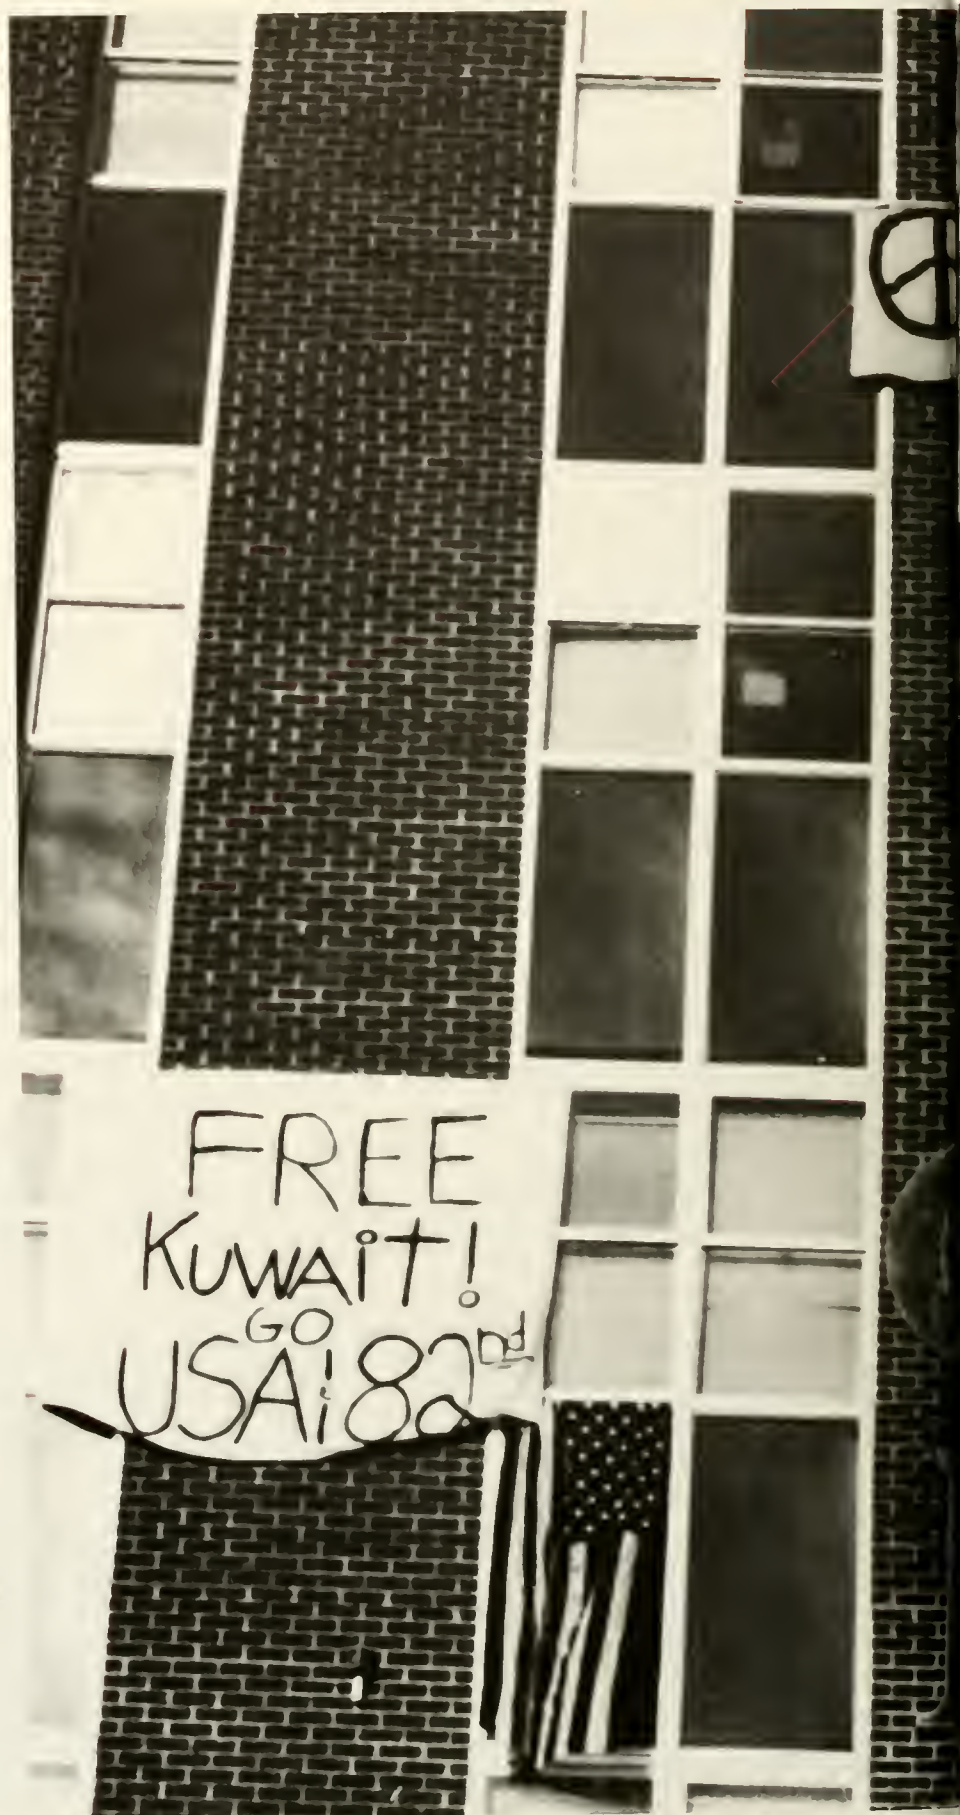 FREE
KUWAiT!
GO
USA! 82nd